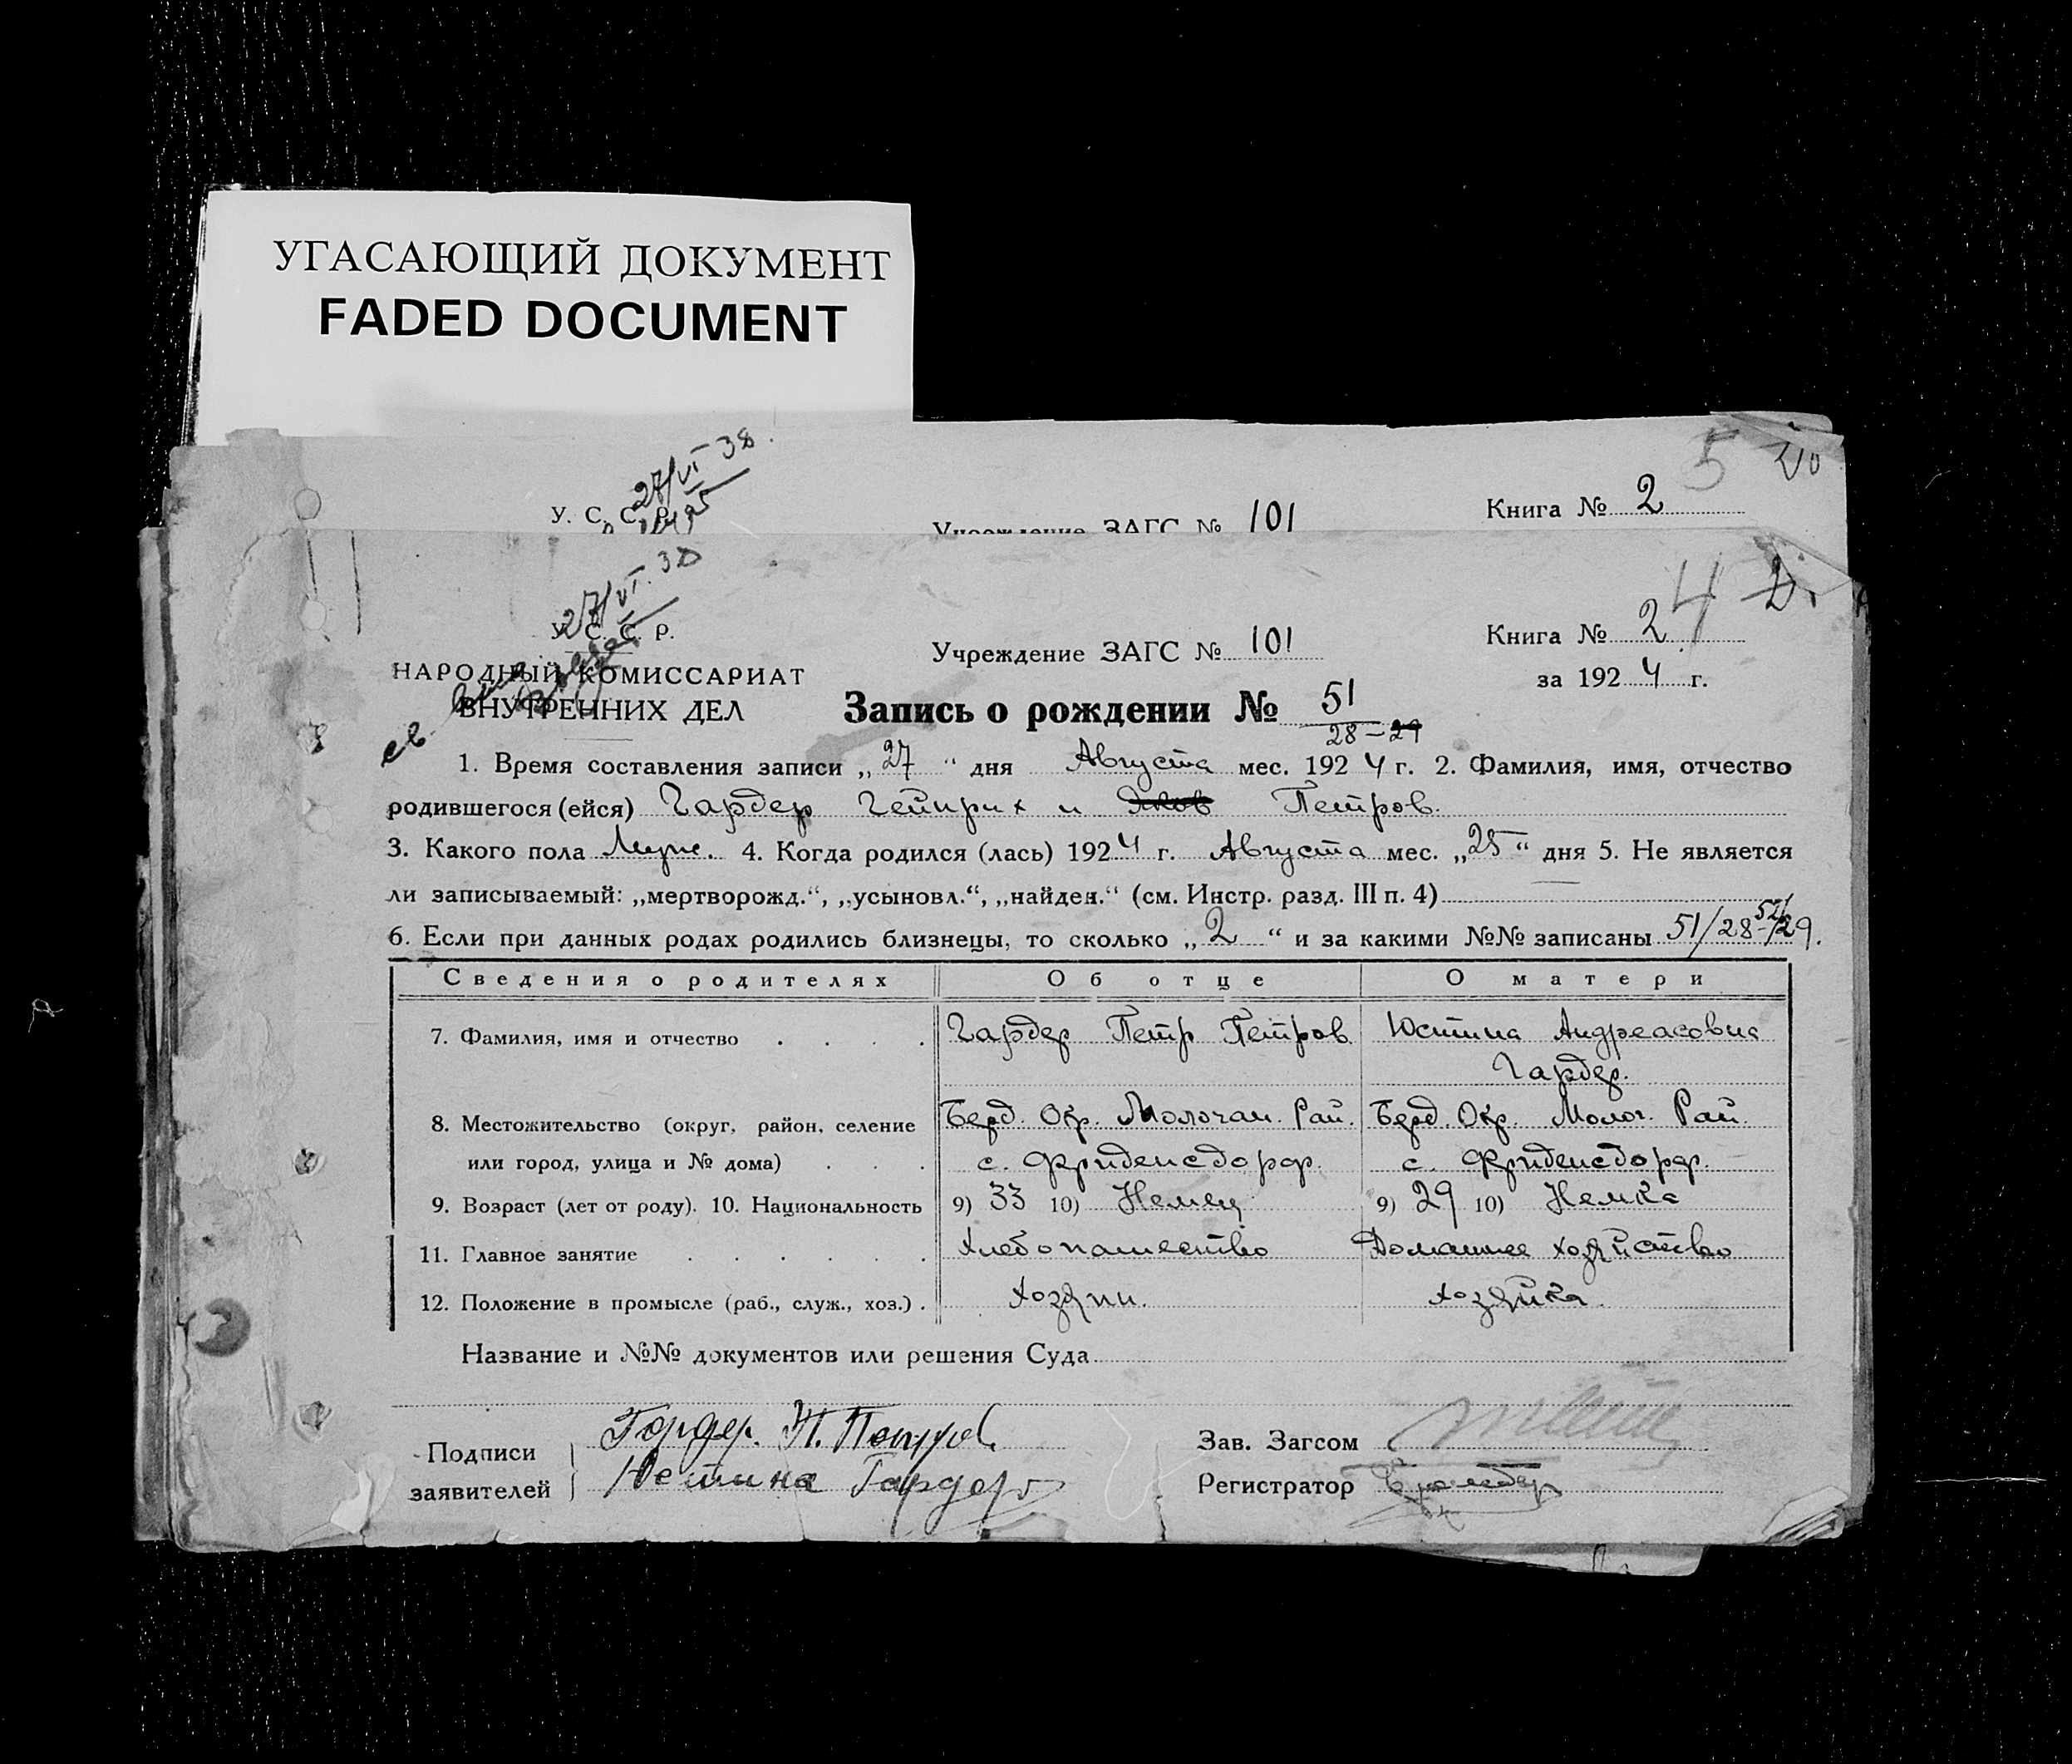 УГАСАЮЩИЙ ДОКУМЕНТ
FADED DOCUMENT
27/VI 38.
5
У. С. С. Р.
Учреждение ЗАГС № 101
Книга № 2
27/VI. 38
4
У. С. С. Р.
НАРОДНЫЙ КОМИССАРИАТ
ВНУТРЕННИХ ДЕЛ
Учреждение ЗАГС № 101
Книга № 2
за 1924 г.
Запись о рождении № 51
28–29
1. Время составления записи „27“ дня Августа мес. 1924 г. 2. Фамилия, имя, отчество
родившегося (ейся) Гардер Гейнрих и Яков Петров.
3. Какого пола Муж. 4. Когда родился (лась) 1924 г. Августа мес. „25“ дня 5. Не является
ли записываемый: „мертворожд.“, „усыновл.“, „найден.“ (см. Инстр. разд. III п. 4)
6. Если при данных родах родились близнецы, то сколько „2“ и за какими №№ записаны 51/28–52/29.
Сведения о родителях Об отце О матери
7. Фамилия, имя и отчество . . . . Гардер Петр Петров Юстина Андреасовна
Гардер.
8. Местожительство (округ, район, селение Берд. Окр. Молочан. Рай. Берд. Окр. Молоч. Рай.
или город, улица и № дома) . . . с. Фриденсдорф. с. Фриденсдорф.
9. Возраст (лет от роду). 10. Национальность 9) 33 10) Немец 9) 29 10) Немка
11. Главное занятие . . . . . . Хлебопашество Домашнее хозяйство
12. Положение в промысле (раб., служ., хоз.) . Хозяин. Хозяйка.
Название и №№ документов или решения Суда
Подписи
заявителей
Гардер. П. Петров.
Юстина Гардер
Зав. Загсом
Регистратор